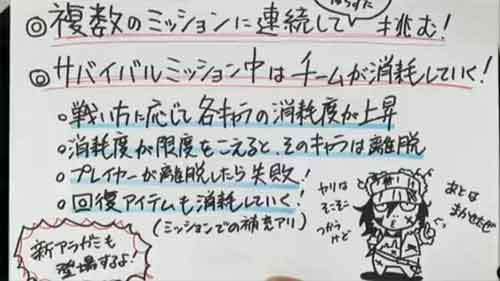 ◎複数のミッションに連続して挑む!
◎サバイバルミッション中はチームが消耗していく!
○戦い方に応じて各キャラの消耗度が上昇
○消耗度が限度をこえると、そのキャラは離脱
○プレイヤーが離脱したら失敗!
○回復アイテムも消耗していく!
(ミッションでの補充アリ)
新アラガミも
登場するよ!
ヤリは
そこそこ
つかう
けど
あとは
まかせたぜ